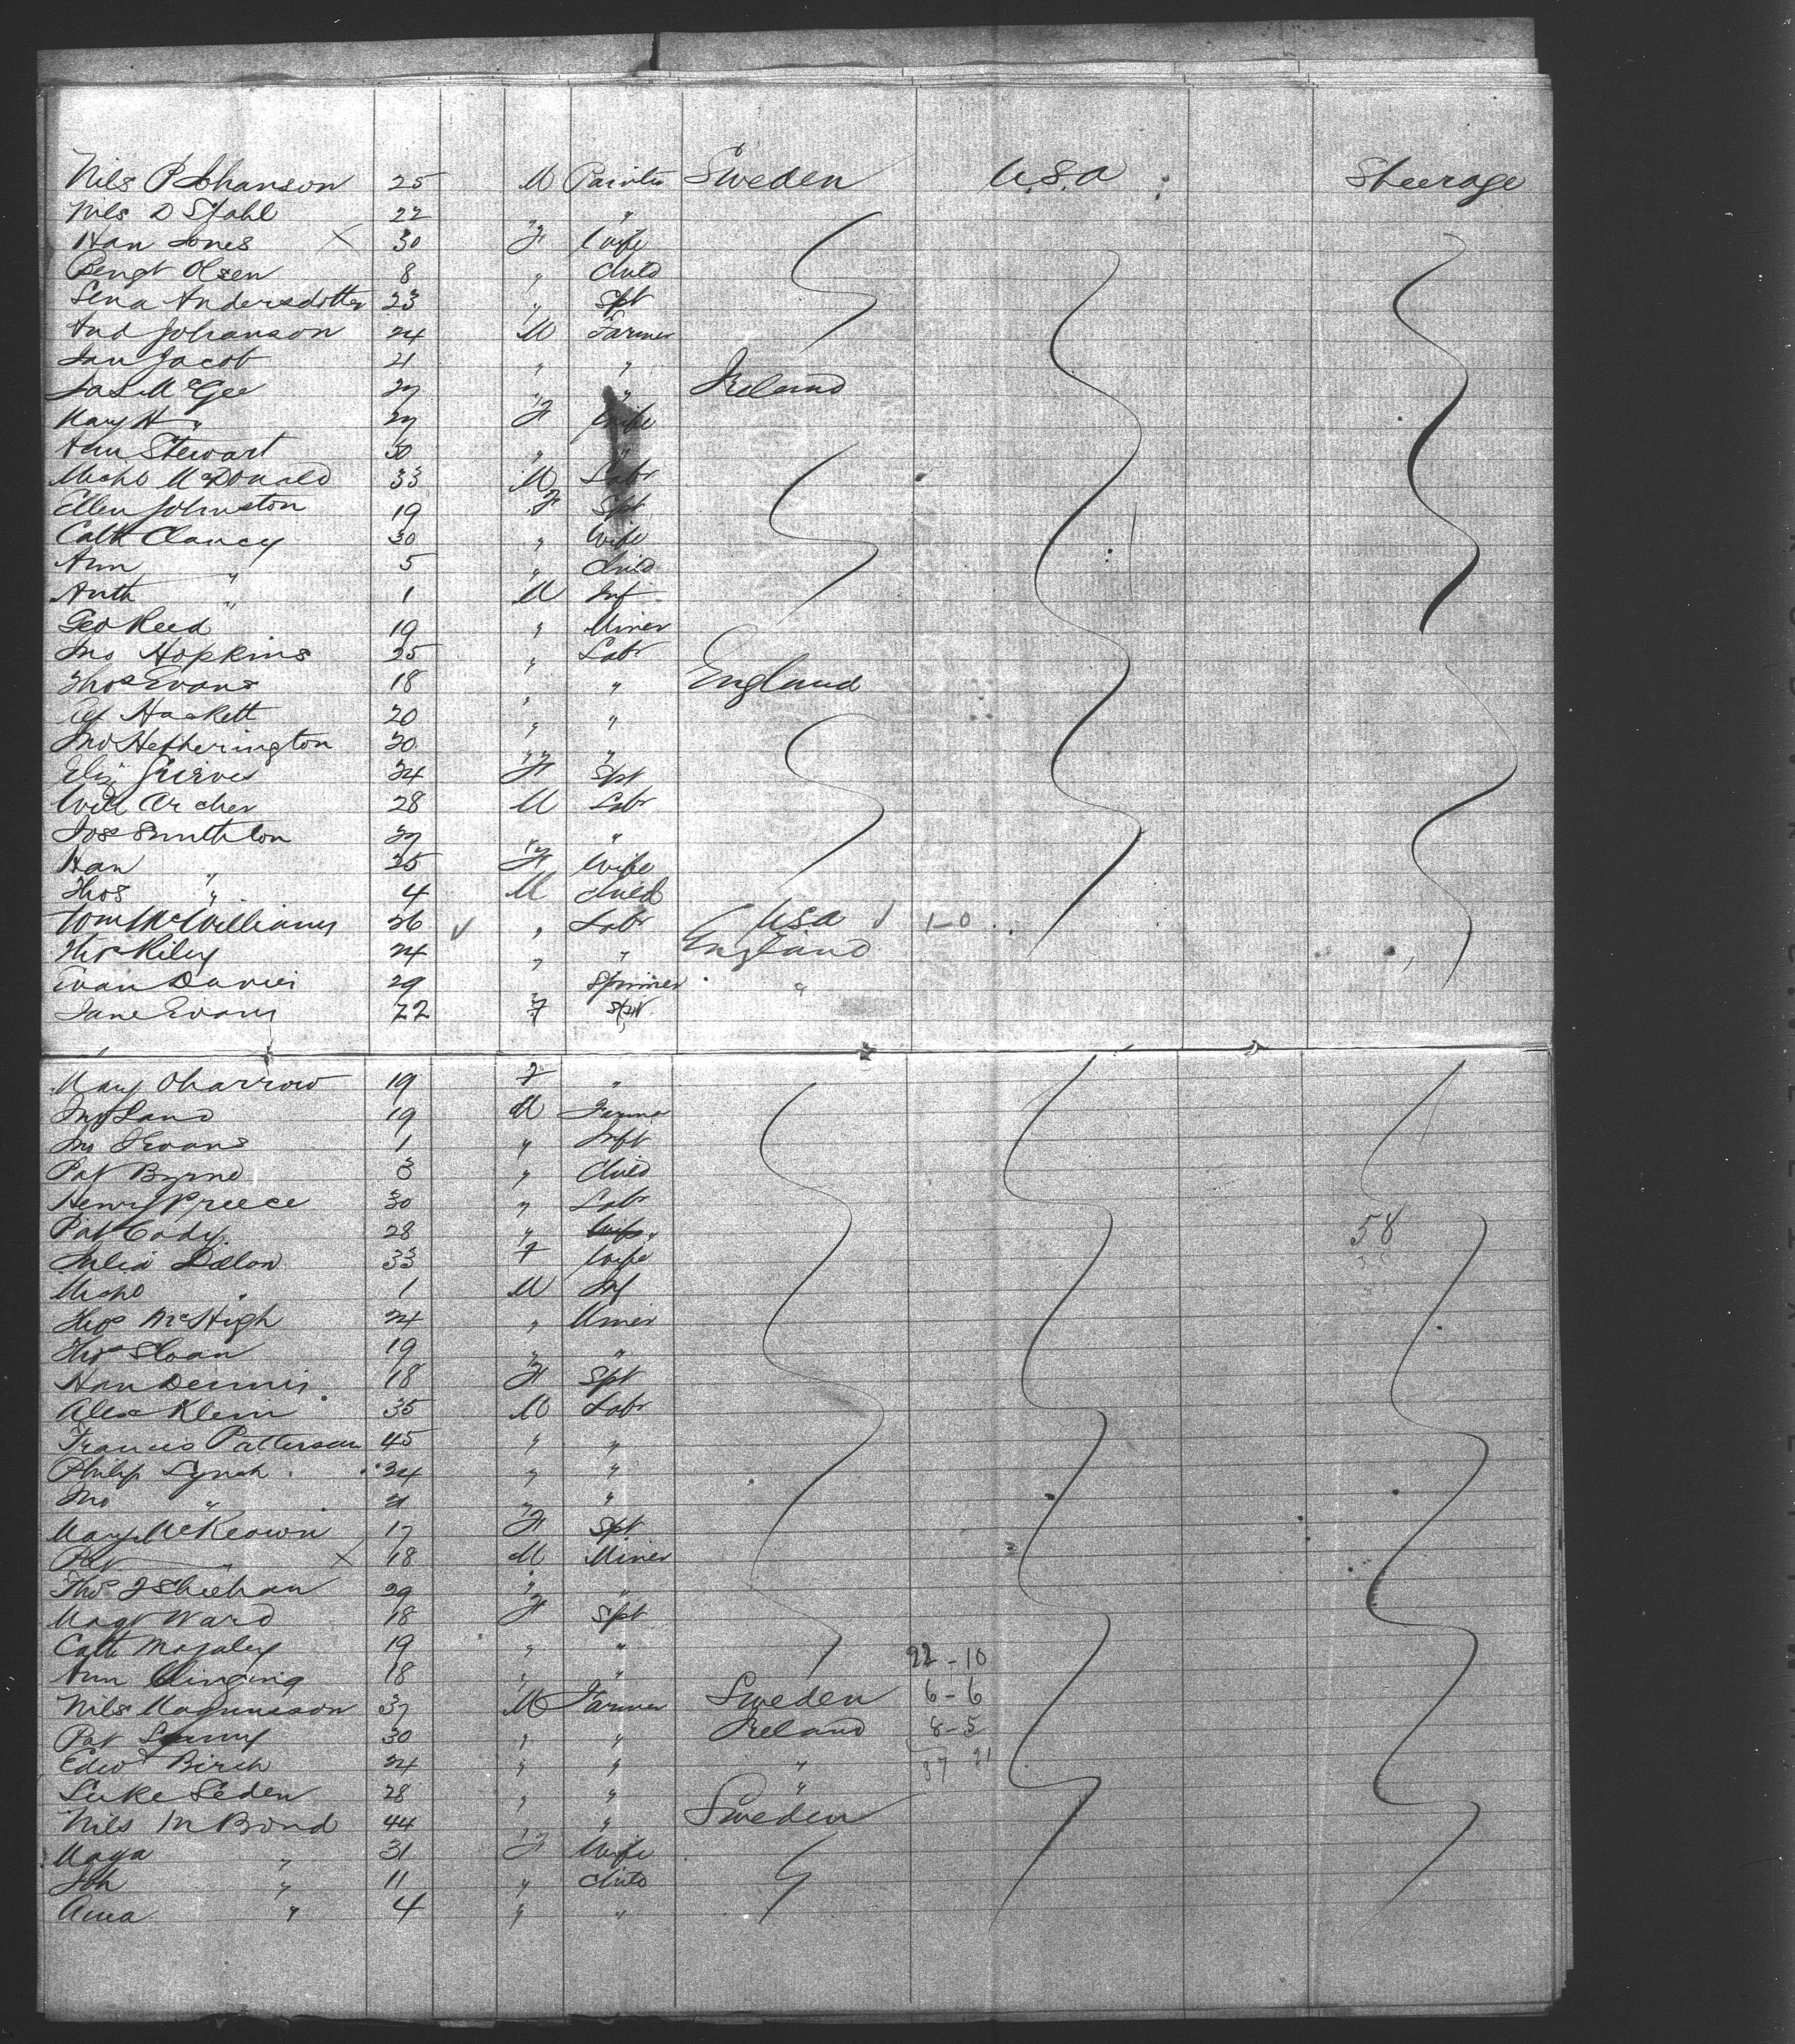 Nils P Johanson 25 M Painter Sweden U.S.A Steerage
Nils D Stahl 22 " "
Han Jones X 30 F Wife
Bengt Olsen 8 " Child
Lena Andersdotter 23 " Spt
And Johanson 24 M Farmer
Jan Jacob 21 " "
Jas McGee 27 " " Ireland
Mary H " 27 F Wife
Ann Stewart 30 " "
Micho McDonald 33 M Labr
Ellen Johnston 19 F Spt
Cath Clancy 30 " Wife
Ann " 5 " Child
Anth " 1 M Inf
Geo Reed 19 " Miner
Jno Hopkins 25 " Labr
Thos Evans 18 " " England
Hackett 20 " "
Jno Hetherington 20 " "
Eliz Grieves 24 F Spt
Will Archer 28 M Labr
Jos Smithton 27 " "
Han " 25 F Wife
Thos " 4 M Child
Wm McWilliams 26 " Labr USA 1-0
Thos Riley 24 " " England
Evan Davies 29 Spinner "
Jane Evans 22 F Spt
Mary Oharrow 19 F "
Jno Land 19 M Farmer
Jno J Evans 1 " Inft
Pat Byrne 8 " Child
Henry Preece 30 " Labr
Pat Cody 28 " " 58
Julia Dalon 33 F Wife
Micho " 1 M Inf
Thos McHigh 24 " Miner
Thos Sloan 19 " "
Han Dennis 18 F Spt
Alex Klein 35 M Labr
Francis Patterson 45 " "
Philip Lynch 34 " "
Jno " 21 " "
Mary McKeown 17 F Spt
Pat " X 18 M Miner
Thos J Sheehan 29 " "
Magt Ward 18 F Spt
Cath 19 " " 22-10
Ann 18 " "
Nils Magnusson 37 M Farmer Sweden 6-6
Pat 30 " " Ireland 8-5
Edwd Birch 24 " " " 37 21
Luke Seden 28 " " "
Nils M Bond 44 " " Sweden
Maya " 31 F Wife
Joh " 11 " Child
Anna " 4 " "